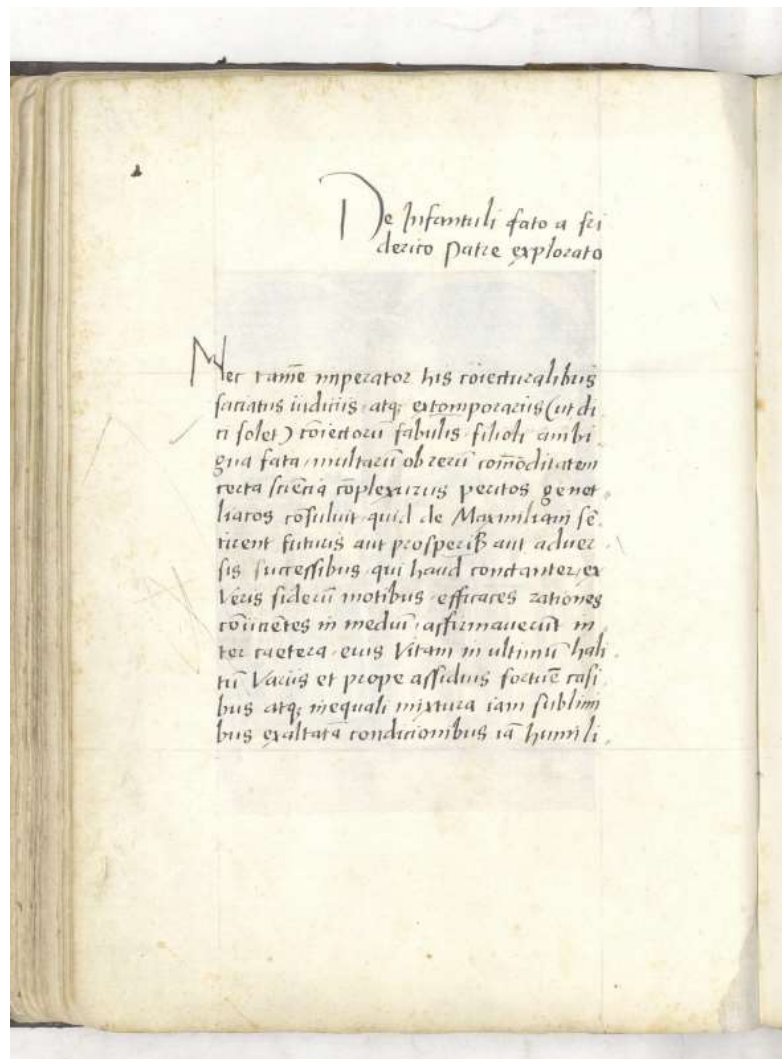 De Infantuli fato a fri
derico patre explorato
Nec tamē imperator his cōiecturalibus
saciatus iudiciis atq; extomporariis (ut di
ci solet) cōiectorū fabulis filioli ambi
gua fata multarū ob rerū com̄oditatem
certa sciēcia cōplexurus peritos genet
liacos cōsuluit quid de Maximiliani sē
tirent futuris aut prosperiß aut aduer
sis successibus qui haud conctanter ex
Veris siderū motibus efficaces rationes
cōiicētes in mediū affirmauerūt in
ter caetera eius Vitam in ultimū hali
tū Variis et prope assiduis fortūe casi
bus atq; inequali mixtura iam sublimi
bus exaltatā condicionibus iā humili